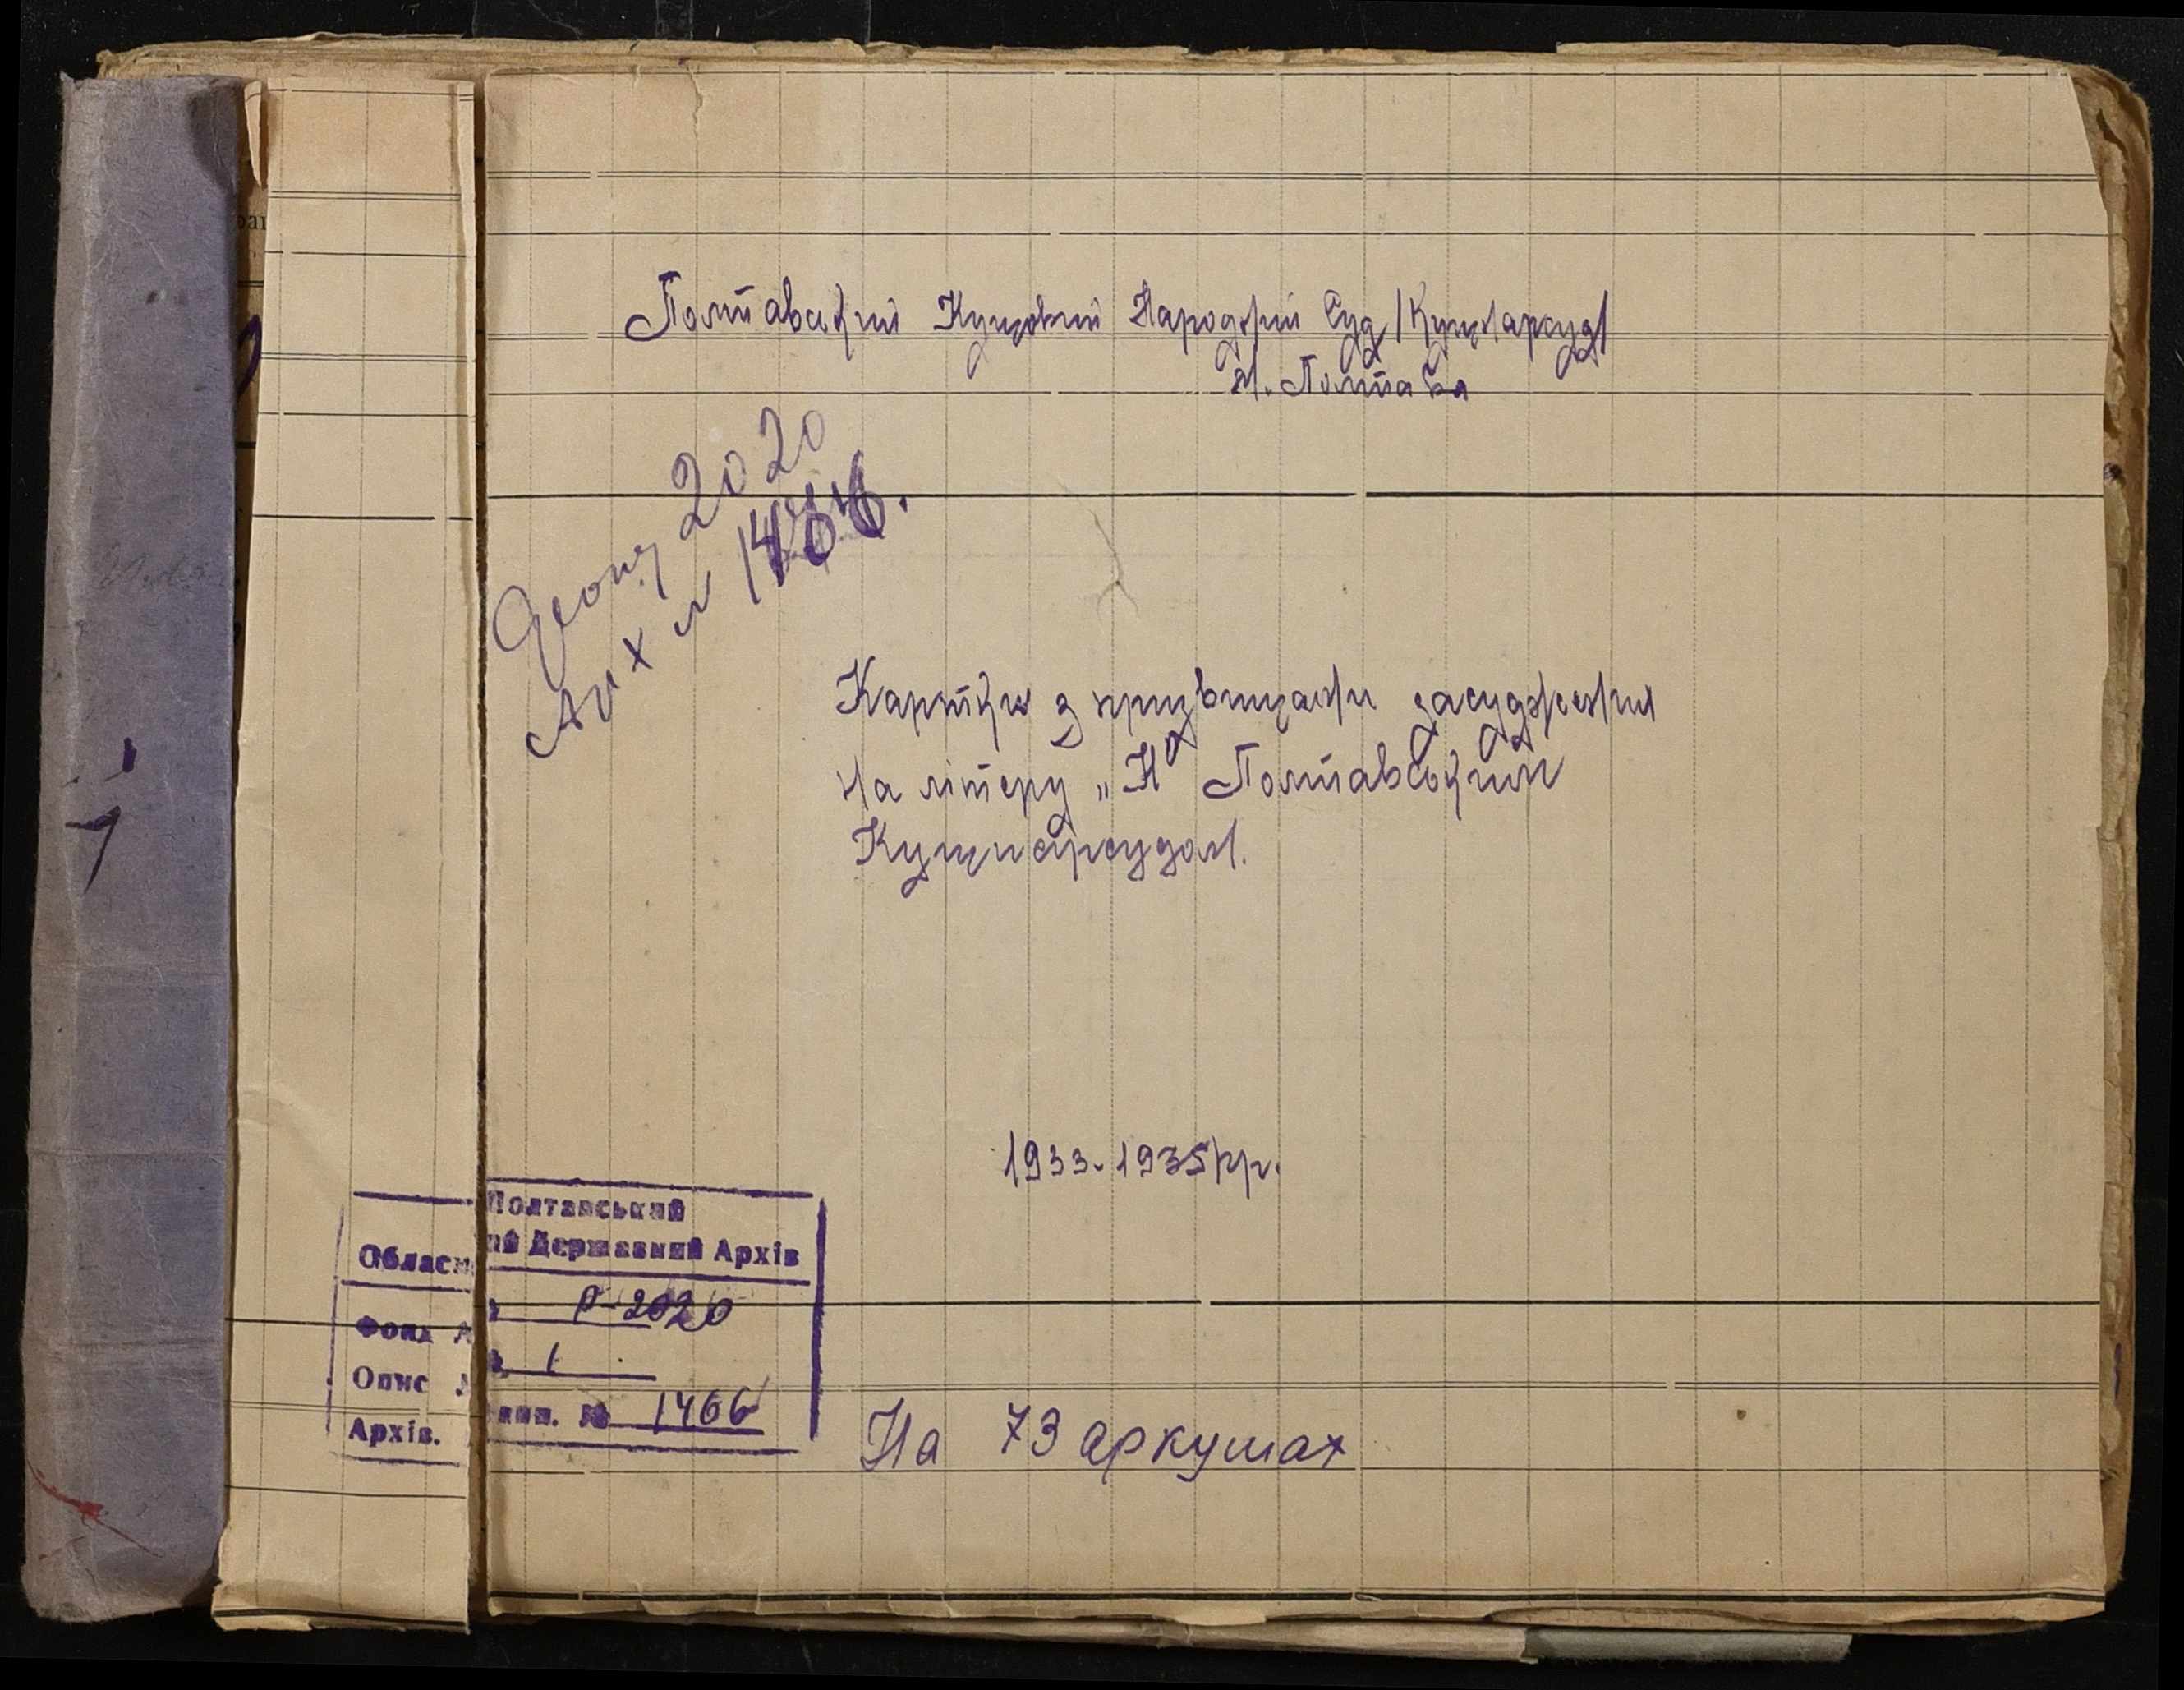 Полтавський Кущовий Народний Суд /Кущнарсуд/
м. Полтава
Фонд 2020
Арх № 1466.
Картки з призвищами засуджених
на літеру „Н" Полтавським
Кущнарсудом.
1933-1935 рр.
Полтавський
Обласний Державний Архів
Фонд № Р-2020
Опис № 1
Архів. № 1466
На 73 аркушах
1